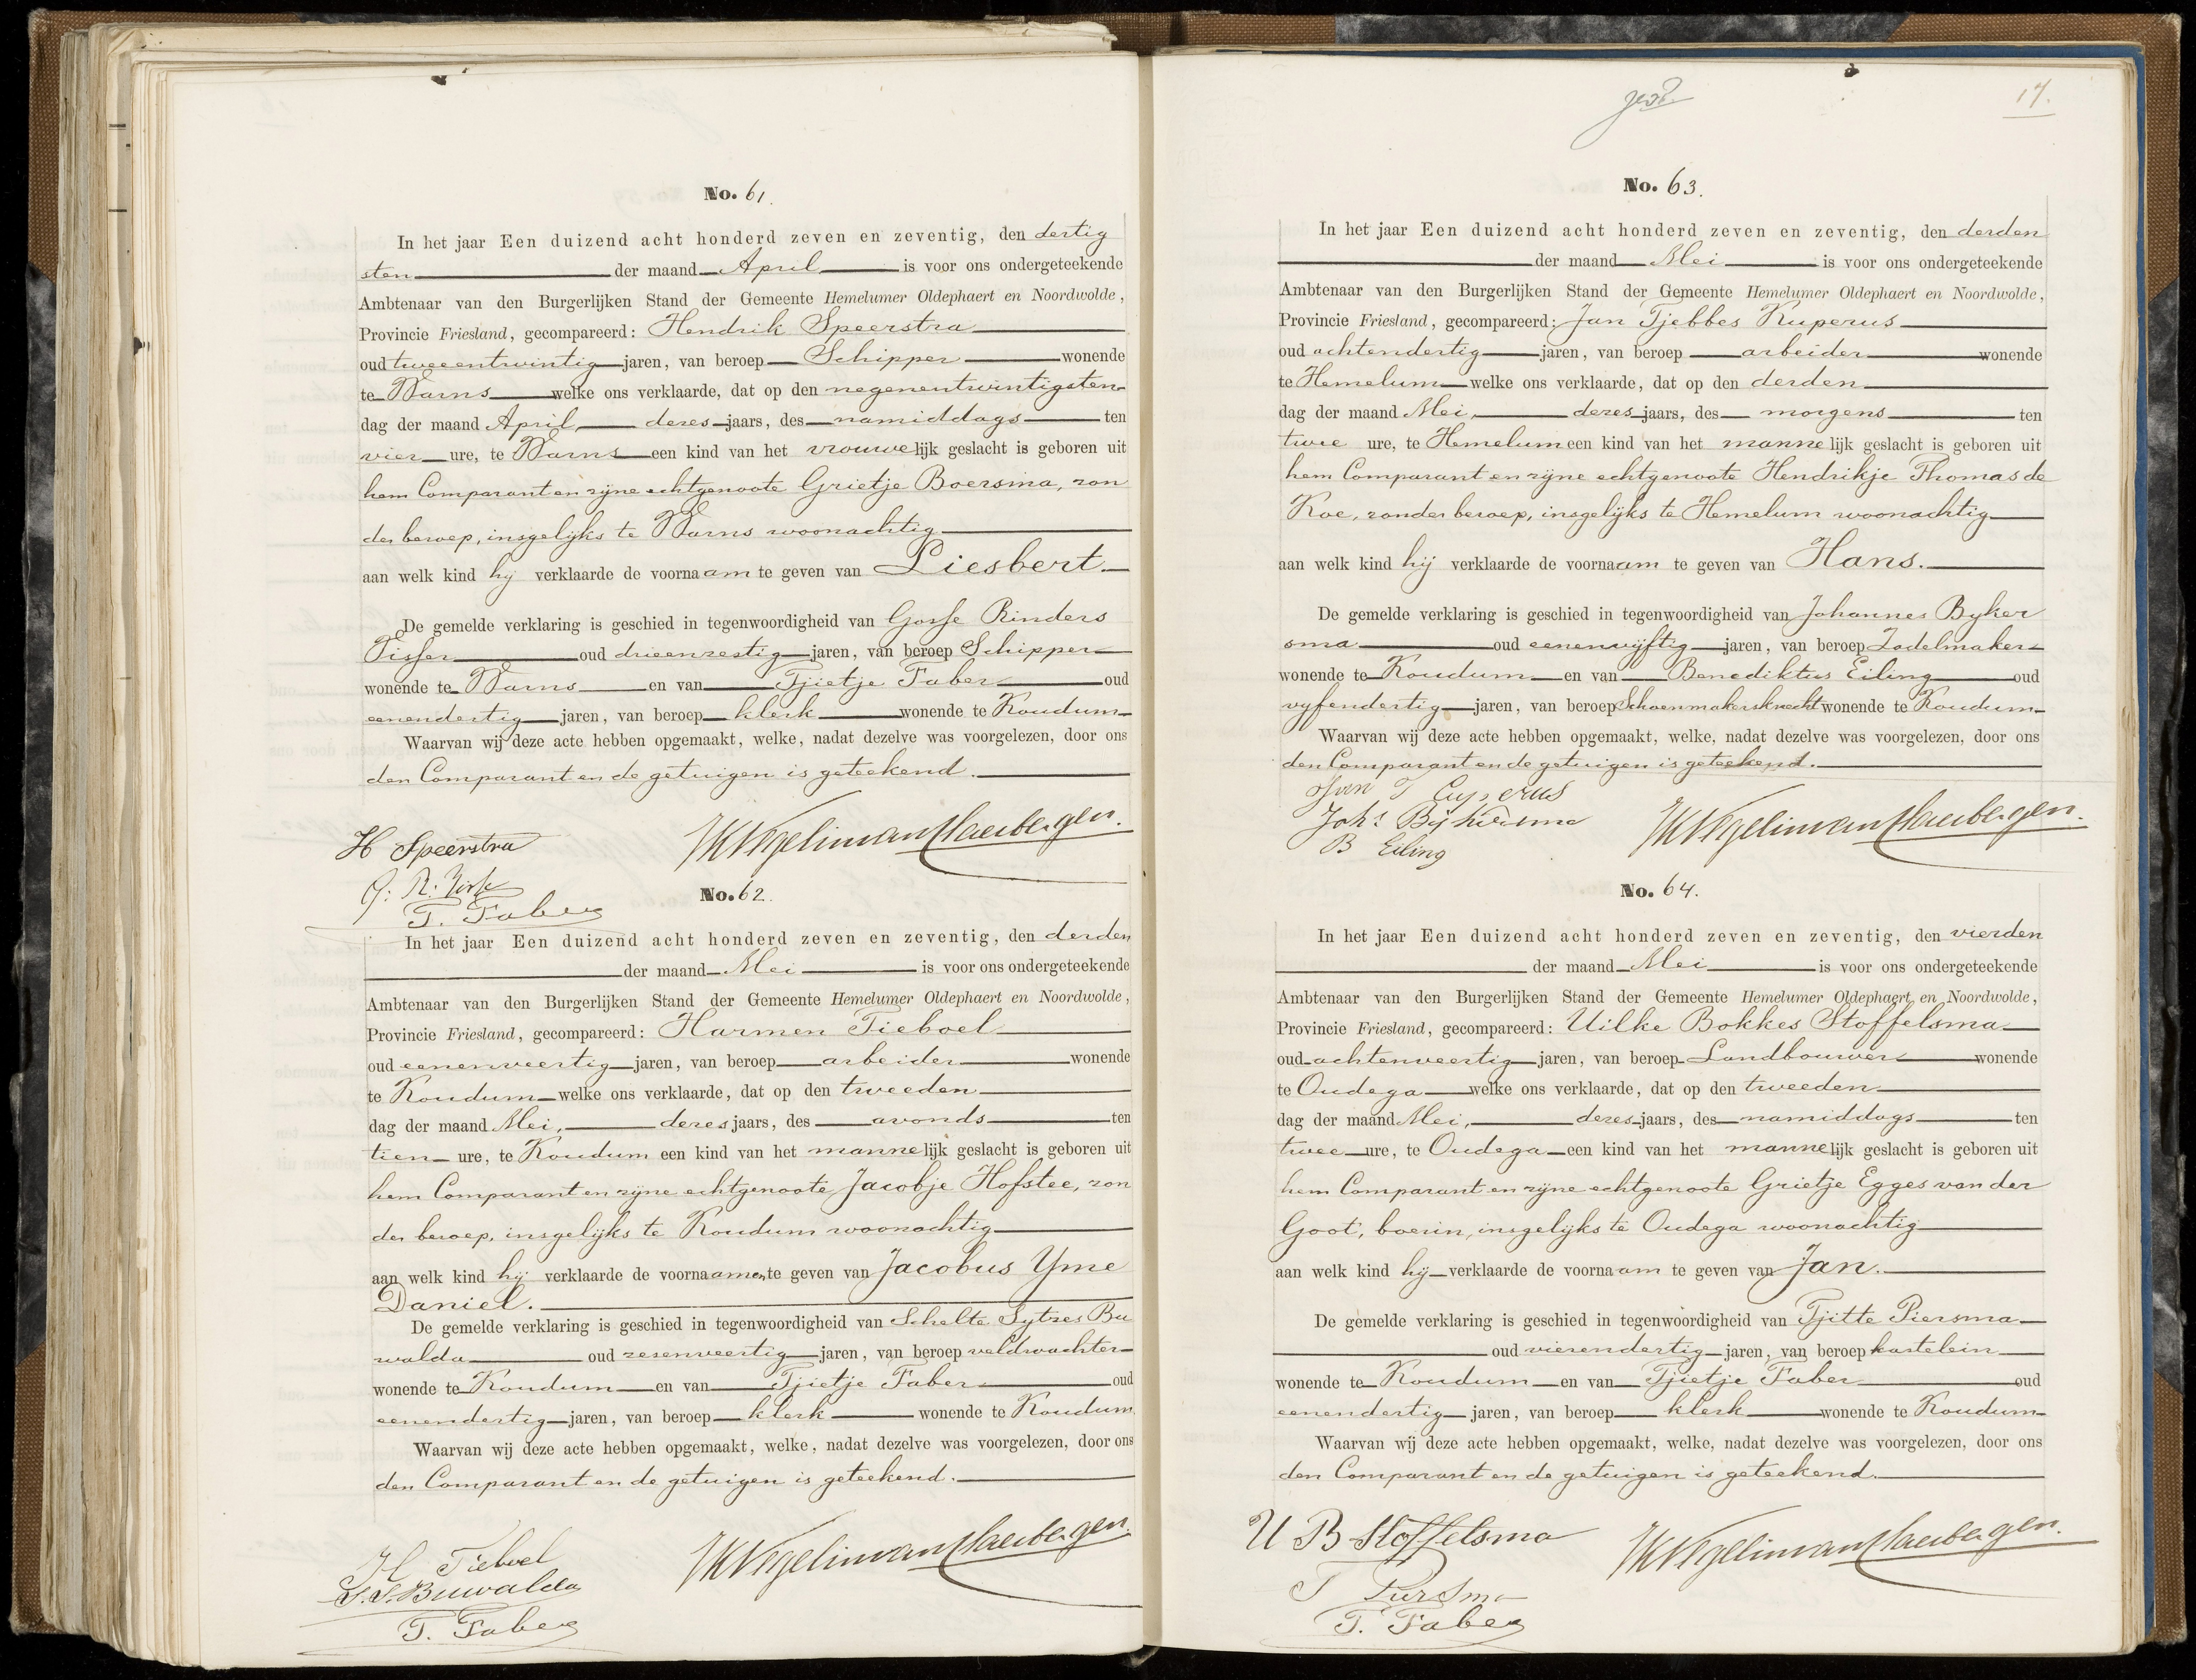 No. 61.
In het jaar Een duizend acht honderd zeven en zeventig, den dertig
sten der maand April is voor ons ondergeteekende
Ambtenaar van den Burgerlijken Stand der Gemeente Hemelumer Oldephaert en Noordwolde,
Provincie Friesland, gecompareerd: Hendrik Speerstra
oud tweeentwintig jaren, van beroep Schipper wonende
te Warns welke ons verklaarde, dat op den negenentwintigsten
dag der maand April, dezes jaars, des namiddags ten
vier ure, te Warns een kind van het vrouwelijk geslacht is geboren uit
hem Comparant en zijne echtgenoote Grietje Boersma, zon
der beroep, insgelijks te Warns woonachtig
aan welk kind hij verklaarde de voornaam te geven van Liesbert
De gemelde verklaring is geschied in tegenwoordigheid van Gosse Rinders
Visser oud drieenzestig jaren, van beroep Schipper
wonende te Warns en van Tjietje Faber oud
eenendertig jaren, van beroep klerk wonende te Koudum
Waarvan wij deze acte hebben opgemaakt, welke, nadat dezelve was voorgelezen, door ons
den Comparant en de getuigen is geteekend.
H Speerstra
G: R. 
T. Faber
No. 62.
In het jaar Een duizend acht honderd zeven en zeventig, den derden
der maand Mei is voor ons ondergeteekende
Ambtenaar van den Burgerlijken Stand der Gemeente Hemelumer Oldephaert en Noordwolde,
Provincie Friesland, gecompareerd: Harmen Tieboel
oud eenenveertig jaren, van beroep arbeider wonende
te Koudum welke ons verklaarde, dat op den tweeden
dag der maand Mei, dezes jaars, des avonds ten
tien ure, te Koudum een kind van het mannelijk geslacht is geboren uit
hem Comparant en zijne echtgenoote Jacobje Hofstee, zon
der beroep, insgelijks te Koudum woonachtig
aan welk kind hij verklaarde de voornaamen te geven van Jacobus Yme
Daniel.
De gemelde verklaring is geschied in tegenwoordigheid van Schelte Sytzes Bu
walda oud zesenveertig jaren, van beroep veldwachter
wonende te Koudum en van Tjietje Faber oud
eenendertig jaren, van beroep klerk wonende te Koudum
Waarvan wij deze acte hebben opgemaakt, welke, nadat dezelve was voorgelezen, door ons
den Comparant en de getuigen is geteekend.
H Tieboel
S. S. Buwalda
T. Faber
17.
No. 63.
In het jaar Een duizend acht honderd zeven en zeventig, den derden
der maand Mei is voor ons ondergeteekende
Ambtenaar van den Burgerlijken Stand der Gemeente Hemelumer Oldephaert en Noordwolde,
Provincie Friesland, gecompareerd: Jan Tjebbes Kuperus
oud achtendertig jaren, van beroep arbeider wonende
te Hemelum welke ons verklaarde, dat op den derden
dag der maand Mei, dezes jaars, des morgens ten
twee ure, te Hemelum een kind van het mannelijk geslacht is geboren uit
hem Comparant en zijne echtgenoote Hendrikje Thomas de
Koe, zonder beroep, insgelijks te Hemelum woonachtig
aan welk kind hij verklaarde de voornaam te geven van Hans.
De gemelde verklaring is geschied in tegenwoordigheid van Johannes Byker
sma oud eenenvijftig jaren, van beroep Zadelmaker
wonende te Koudum en van Benediktus Eiling oud
vyfendertig jaren, van beroep Schoenmakersknecht wonende te Koudum
Waarvan wij deze acte hebben opgemaakt, welke, nadat dezelve was voorgelezen, door ons
den Comparant en de getuigen is geteekend.
Jan T Cuperus
Johs Bijkersma
B Eiling
No. 64.
In het jaar Een duizend acht honderd zeven en zeventig, den vierden
der maand Mei is voor ons ondergeteekende
Ambtenaar van den Burgerlijken Stand der Gemeente Hemelumer Oldephaert en Noordwolde,
Provincie Friesland, gecompareerd: Uilke Bokkes Stoffelsma
oud achtenveertig jaren, van beroep Landbouwer wonende
te Oudega welke ons verklaarde, dat op den tweeden
dag der maand Mei, dezes jaars, des namiddags ten
twee ure, te Oudega een kind van het mannelijk geslacht is geboren uit
hem Comparant en zijne echtgenoote Grietje Egges van der
Goot, boerin, insgelijks te Oudega woonachtig
aan welk kind hij verklaarde de voornaam te geven van Jan.
De gemelde verklaring is geschied in tegenwoordigheid van Tjitte Piersma
oud vierendertig jaren, van beroep kastelein
wonende te Koudum en van Tjietje Faber oud
eenendertig jaren, van beroep klerk wonende te Koudum
Waarvan wij deze acte hebben opgemaakt, welke, nadat dezelve was voorgelezen, door ons
den Comparant en de getuigen is geteekend.
U B Stoffelsma
T Piersma
T. Faber